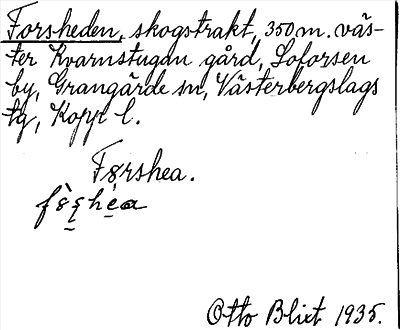 Forsheden, skogstrakt, 350 m. väs-
ter Kvarnstugan gård, Loforsen
by, Grangärde sn, Västerbergslags
tg, Kopp l.
Førshea.
Otto Blixt 1935.